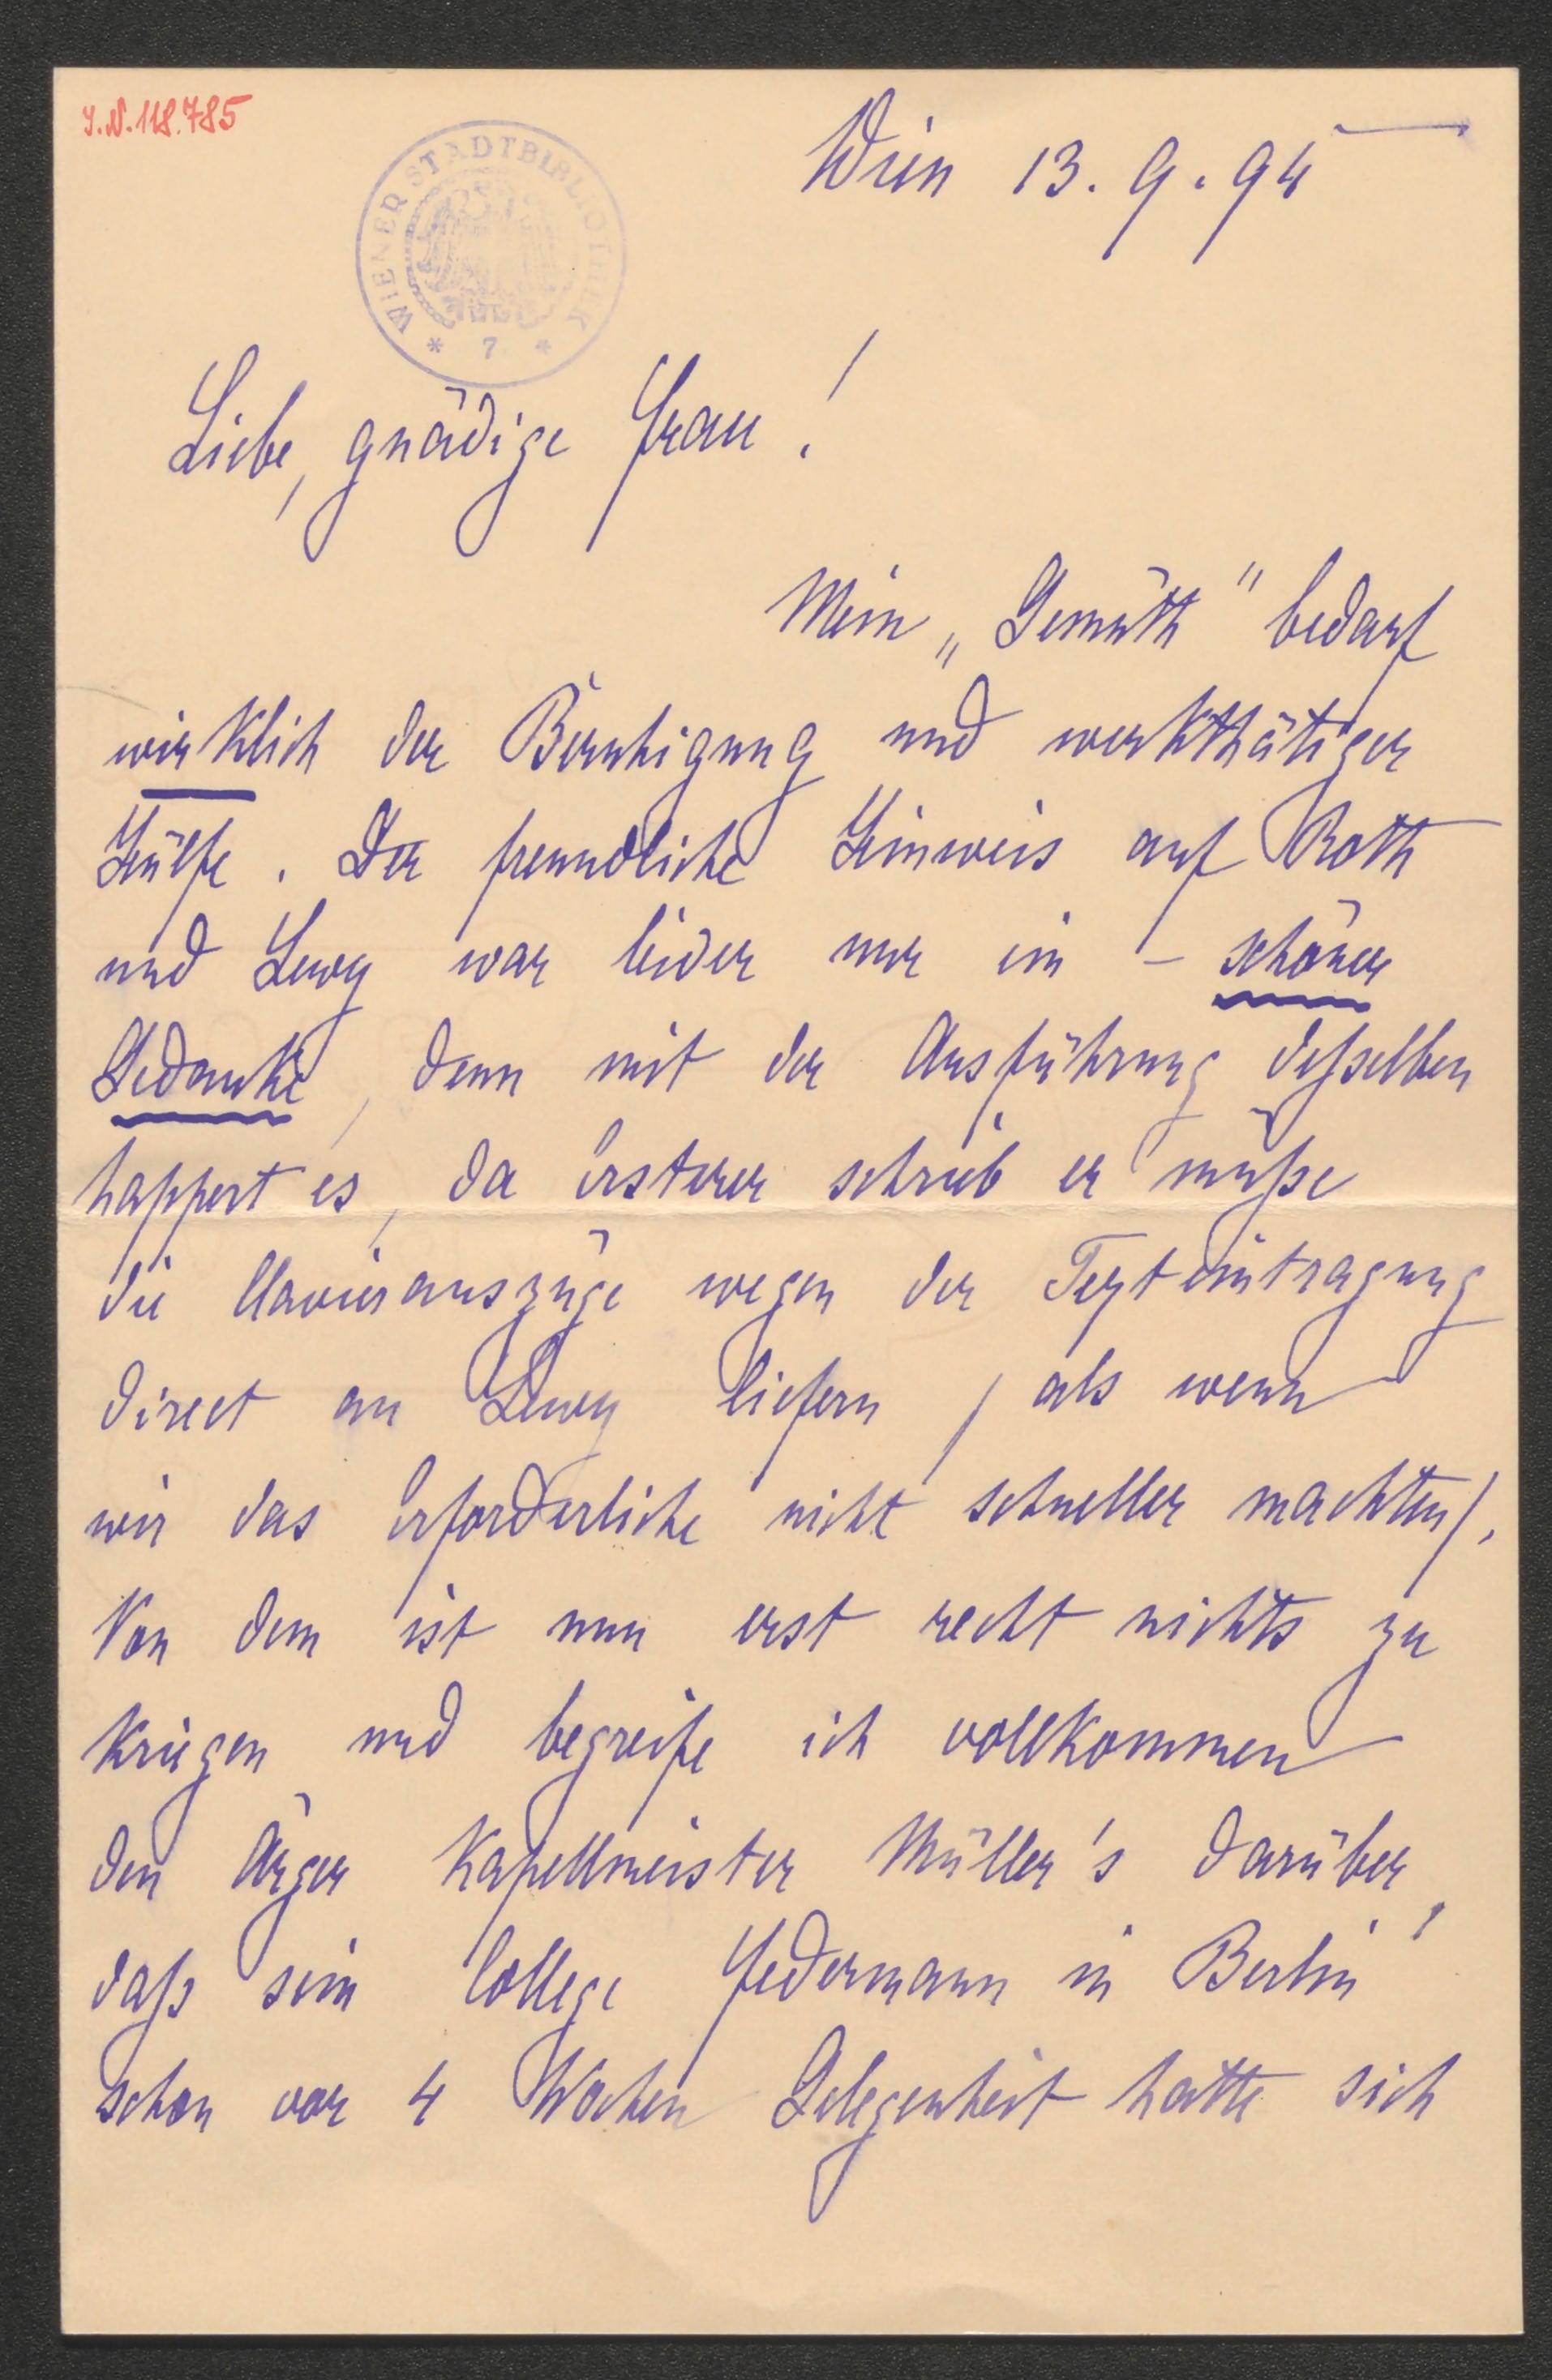 J.N. 118.785
WIENER STADTBIBLIOTHEK
* 7 *
Wien 13. 9. 95
Liebe, gnädige Frau!
Mein „Gemüth" bedarf
wirklich der Beruhigung und werkthätiger
Hülfe. Der freundliche Hinweis auf Roth
und Lewy war leider nur ein – schöner
Gedanke, denn mit der Ausführung deßselben
happert es, da Ersterer schrieb er müße
die Clavierauszüge wegen der Texteintragung
direct an Lewy liefern / als wenn
wir das Erforderliche nicht schneller machten/.
Von dem ist nun erst recht nichts zu
kriegen und begreife ich vollkommen
den Ärger Kapellmeister Müller's darüber,
daß sein College Federmann in Berlin
schon vor 4 Wochen Gelegenheit hatte sich